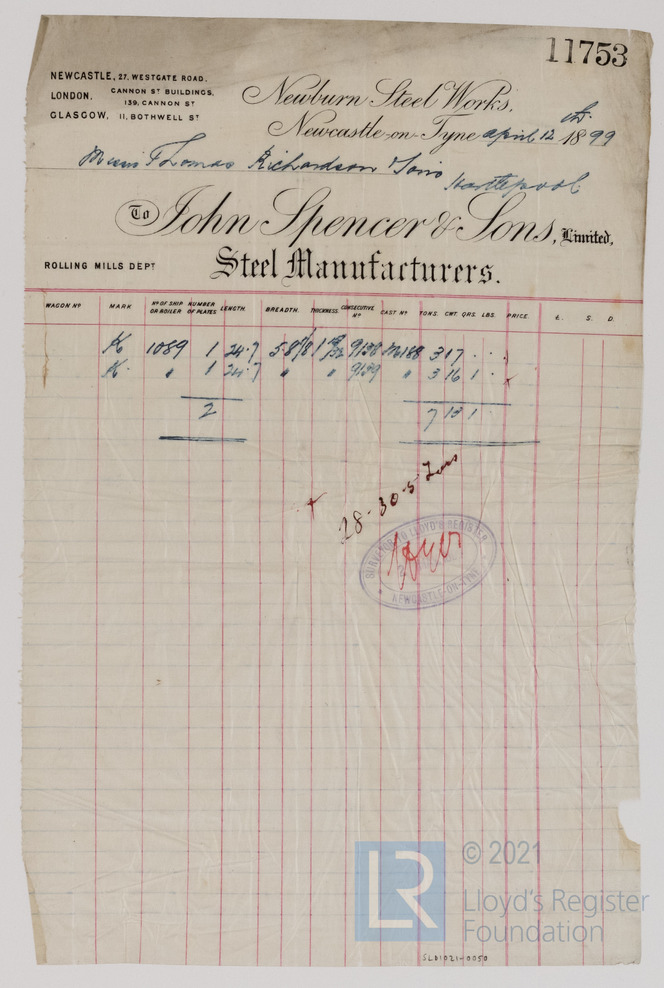 11753
NEWCASTLE, 27, WESTGATE ROAD,
LONDON, CANNON ST BUILDINGS,
139, CANNON ST
GLASGOW, 11, BOTHWELL ST
Newburn Steel Works,
Newcastle-on-Tyne april 12 th 1899
Messrs Thomas Richardson & Sons
Hartlepool
To John Spencer & Sons, Limited,
ROLLING MILLS DEPT Steel Manufacturers.
WAGON No MARK No OF SHIP OR BOILER NUMBER OF PLATES LENGTH. BREADTH. THICKNESS. CONSECUTIVE No CAST No TONS. CWT. QRS. LBS. PRICE. £. S. D.
K 1089 1 24·7 5·8 7/8 9138 M188 3 17 · ·
K · " 1 24·7 " " 9139 " 3 16 1 ·
2 7 13 1 ·
28-30·5 Tons
SURVEYOR TO LLOYD'S REGISTER
NEWCASTLE-ON-TYNE
LR
© 2021
Lloyd's Register
Foundation
SLD1021-0050